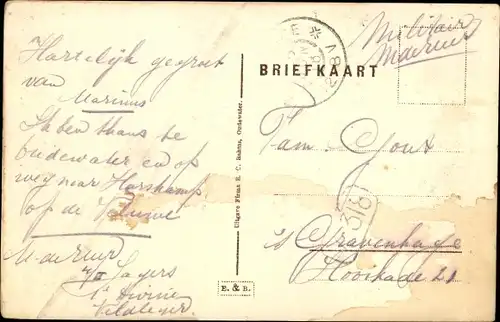 Hartelijk gegroet
van
Marinus
Laten thans te
Oudewater en op
weg naar Harskamp
op de Veluwe
M de Ruij
Jagers
1e Divisie
Veldleger
Uitgave Firma E. C. Rahms, Oudewater.
E. & B.
BRIEFKAART
Militair
Fam
318
's Gravenhage
Hooikade 21